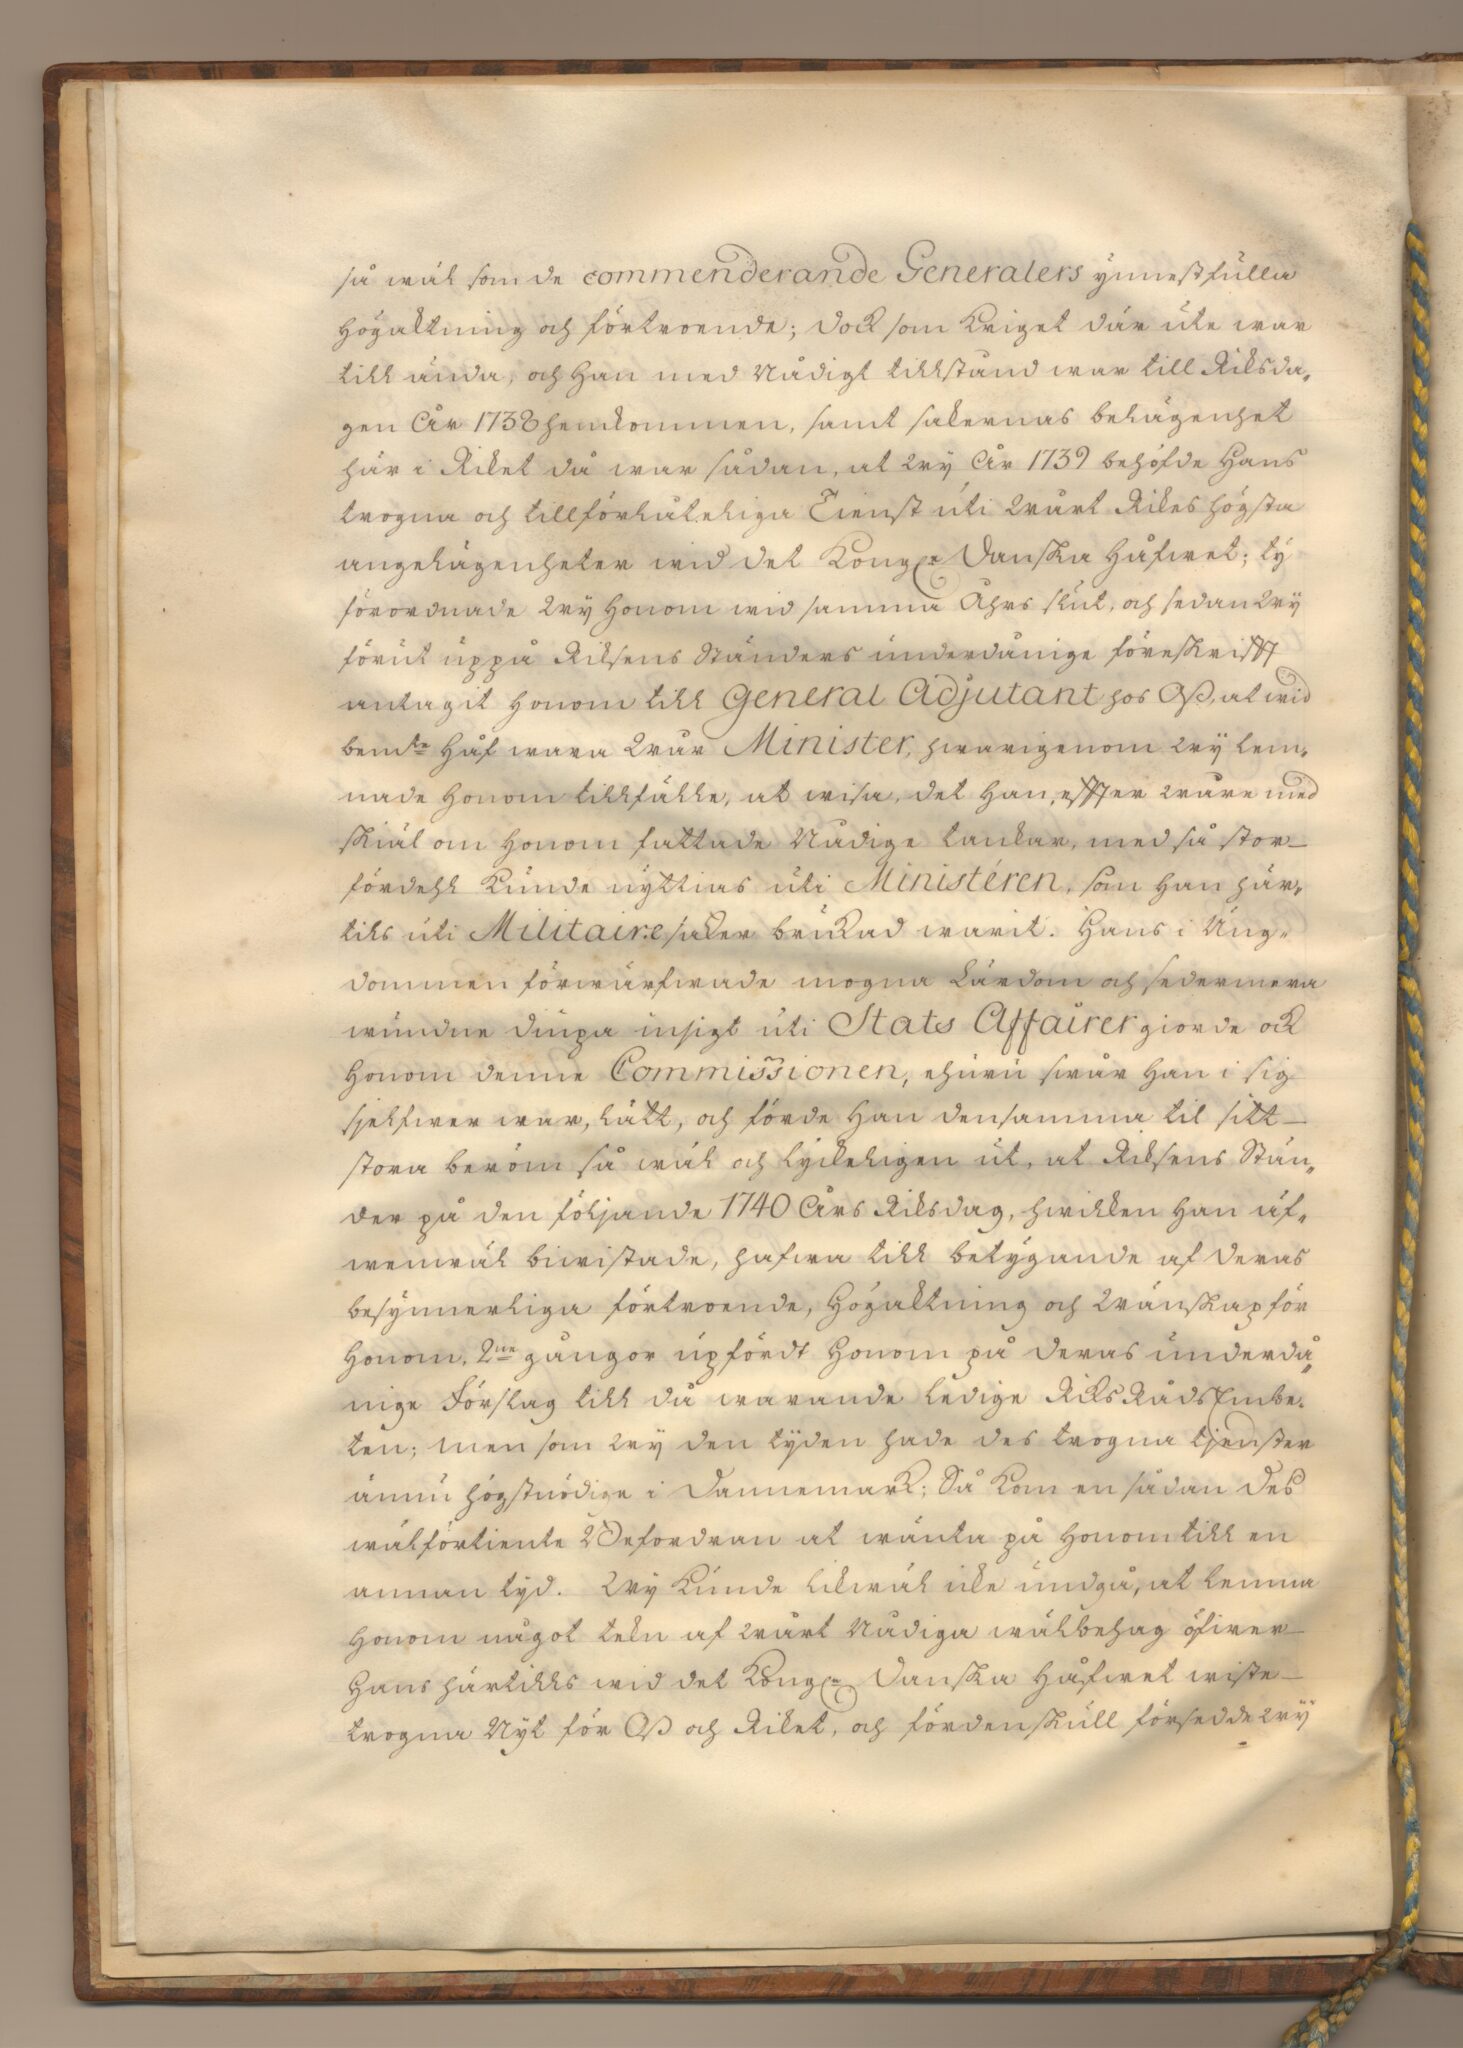 så wäl som de commenderande Generalers ynnestfulla
högaktning och förtroende; dock som kriget där ute war
till ända, och han med Nådigt tillstånd war till Riksda„
gen Åhr 1738 hemkommen, samt sakernas belägenhet
här i Riket då war sådan, at Wy Åhr 1739 behöfde Hans
trogna och tillförlåteliga Tienst uti Wårt Rikes högsta
angelägenheter wid det Kongl. Danska Håfwet; ty
förordnade Wy Honom wid samma Åhrs slut, och sedan Wy
förut uppå Riksens Ständers underdånige föreskrifft
antagit Honom till General Adjutant hos Oß, at wid
bemte Håf wara Wår Minister, hwarigenom Wy lem„
nade Honom tillfälle, at wisa, det Han, effter Wåre med
skiäl om Honom fattade Nådige tankar, med så stor
fördehl kunde nyttias uti Ministéren, som Han här„
tils uti Militaire saker brukad warit. Hans i Ung„
dommen förwärfwade mogna Lärdom och sedermera
wundne diupa insigt uti Stats Affairer giorde ock
Honom denne Commissionen, ehuru swår Han i sig
sjelfwer war, lätt, och förde Han densamma til sitt
stora beröm så wäl och lyckeligen ut, at Riksens Stän„
der på den följande 1740 Års Riksdag, hwilken Han äf„
wenwäl biwistade, hafwa till betygande af deras
besynnerliga förtroende, Högaktning och Wänskap för
Honom, 2ne gångor upfördt Honom på deras underdå„
nige Förslag till då warande ledige RiksRådsEmbe„
ten; men som Wy den tyden hade des trogna tjenster
ännu högstnödige i Dannemark; Så kom en sådan Des
wälförtiente Befordran at wänta på Honom till en
annan tyd. Wy kunde likwäl icke undgå, at lemna
Honom något tekn af Wårt Nådiga wälbehag öfwer
Hans härtills wid det Kongl. Danska Håfwet wiste
trogna Nyt för Oß och Riket, och fördenskull försedde Wy